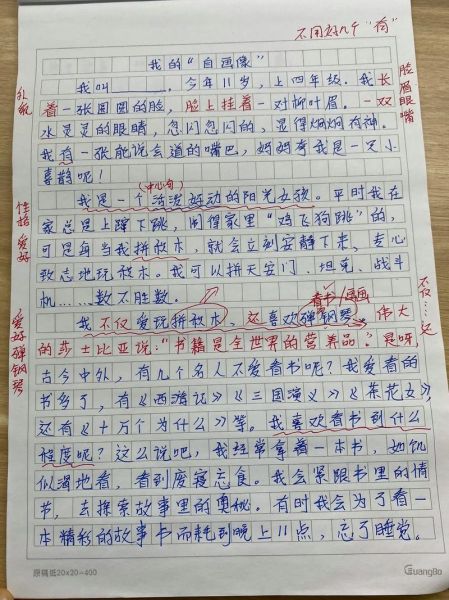 不用好几个“有”
我的“自画像”
我叫______，今年11岁，上四年级。我长
着一张圆圆的脸，脸上挂着一对柳叶眉。一双
水灵灵的眼睛，忽闪忽闪的，显得炯炯有神。
我有一张能说会道的嘴巴，妈妈夸我是一只小
喜鹊呢！
（中心句）
我是一个活泼好动的阳光女孩。平时我在
家总是上蹿下跳，闹得家里“鸡飞狗跳”的，
可是每当我拼积木，就会立刻安静下来，专心
致志地玩积木。我可以拼天安门、坦克、战斗
机……数不胜数。
看书/画画
我不仅爱玩拼积木，还喜欢弹钢琴。伟大
的莎士比亚说：“书籍是全世界的营养品。”是呀，
古今中外，有几个名人不爱看书呢？我爱看的
书多了，有《西游记》《三国演义》《茶花女》，
还有《十万个为什么》等。我喜欢看书到什么
程度呢？这么说吧，我经常拿着一本书，如饥
似渴地看，看到废寝忘食。我会紧跟书里的情
节，去探索故事里的奥秘。有时我会为了看一
本精彩的故事书而耗到晚上11点，忘了睡觉。
外貌
性格 爱好
爱好弹钢琴
脸眉眼嘴
不仅…还
原稿纸20×20=400
GuangBo